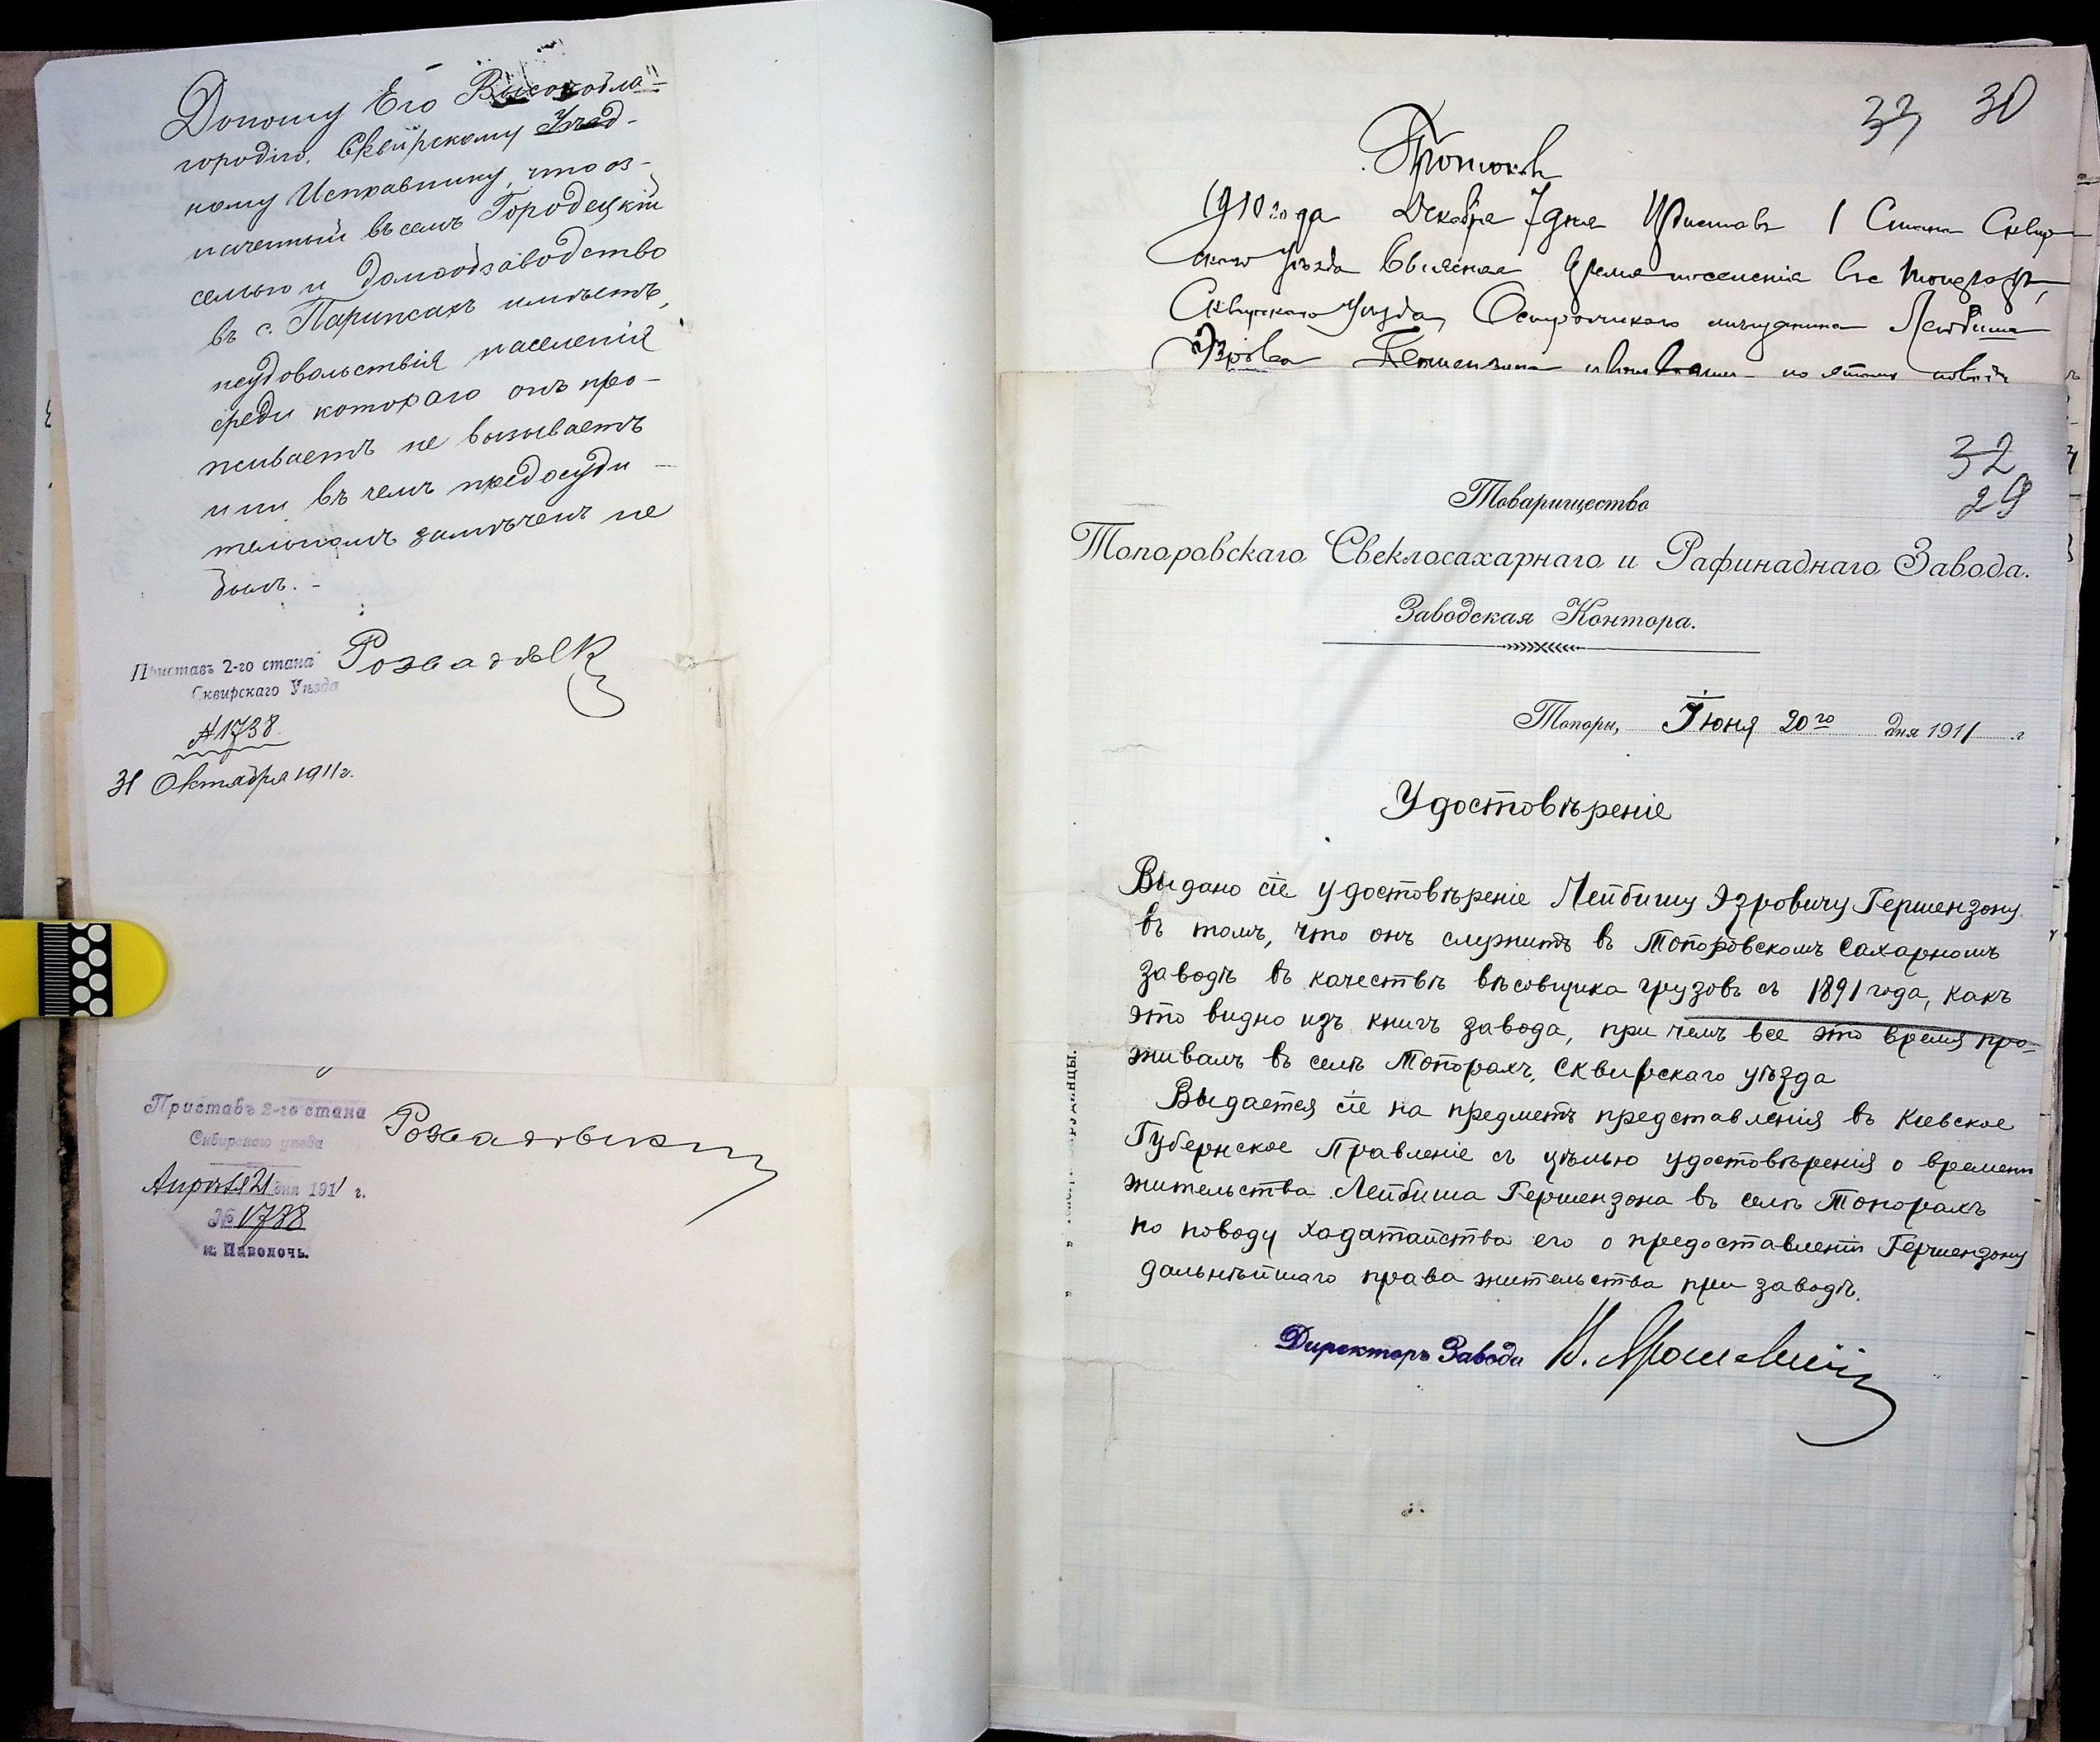 Доношу Его Высокобла-
городію, Сквирскому Уѣзд-
ному Исправнику, что оз-
наченный въ семъ Городецкій
семью и домообзаводство
въ с. Парипсахъ имѣетъ,
неудовольствія населенія
среди котораго онъ про-
живаетъ не вызываетъ
и ни въ чемъ предосуди-
тельномъ замѣченъ не
былъ. -
Приставъ 2-го стана
Сквирскаго Уѣзда
№ 1738
31 Октября 1911 г.
Приставъ 2-го стана
Сквирскаго уѣзда
Апрѣля 21 дня 1911 г.
№ 1788
м. Паволочь.
33 30
Протоколъ
1910 года Декабря 7 дня Приставъ 1 Стана Сквир-
скаго Уѣзда время поселенія
Сквирскаго Уѣзда, мѣщанина Лейбиша
по этому поводу
32
29
Товарищество
Топоровскаго Свеклосахарнаго и Рафинаднаго Завода.
Заводская Контора.
Топоры, Іюня 20го дня 1911 г
Удостовѣреніе
Выдано сіе удостовѣреніе Лейбишу Эзровичу Гершензону
въ томъ, что онъ служитъ въ Топоровскомъ сахарномъ
заводѣ въ качествѣ вѣсовщика грузовъ съ 1891 года, какъ
это видно изъ книгъ завода, при чемъ все это время про-
живалъ въ селѣ Топорахъ, Сквирскаго уѣзда
Выдается сіе на предметъ представленія въ Кіевское
Губернское Правленіе съ цѣлью удостовѣренія о времени
жительства Лейбиша Гершензона въ селѣ Топорахъ
по поводу ходатайства его о предоставленіи Гершензону
дальнѣйшаго права жительства при заводѣ.
Директоръ Завода